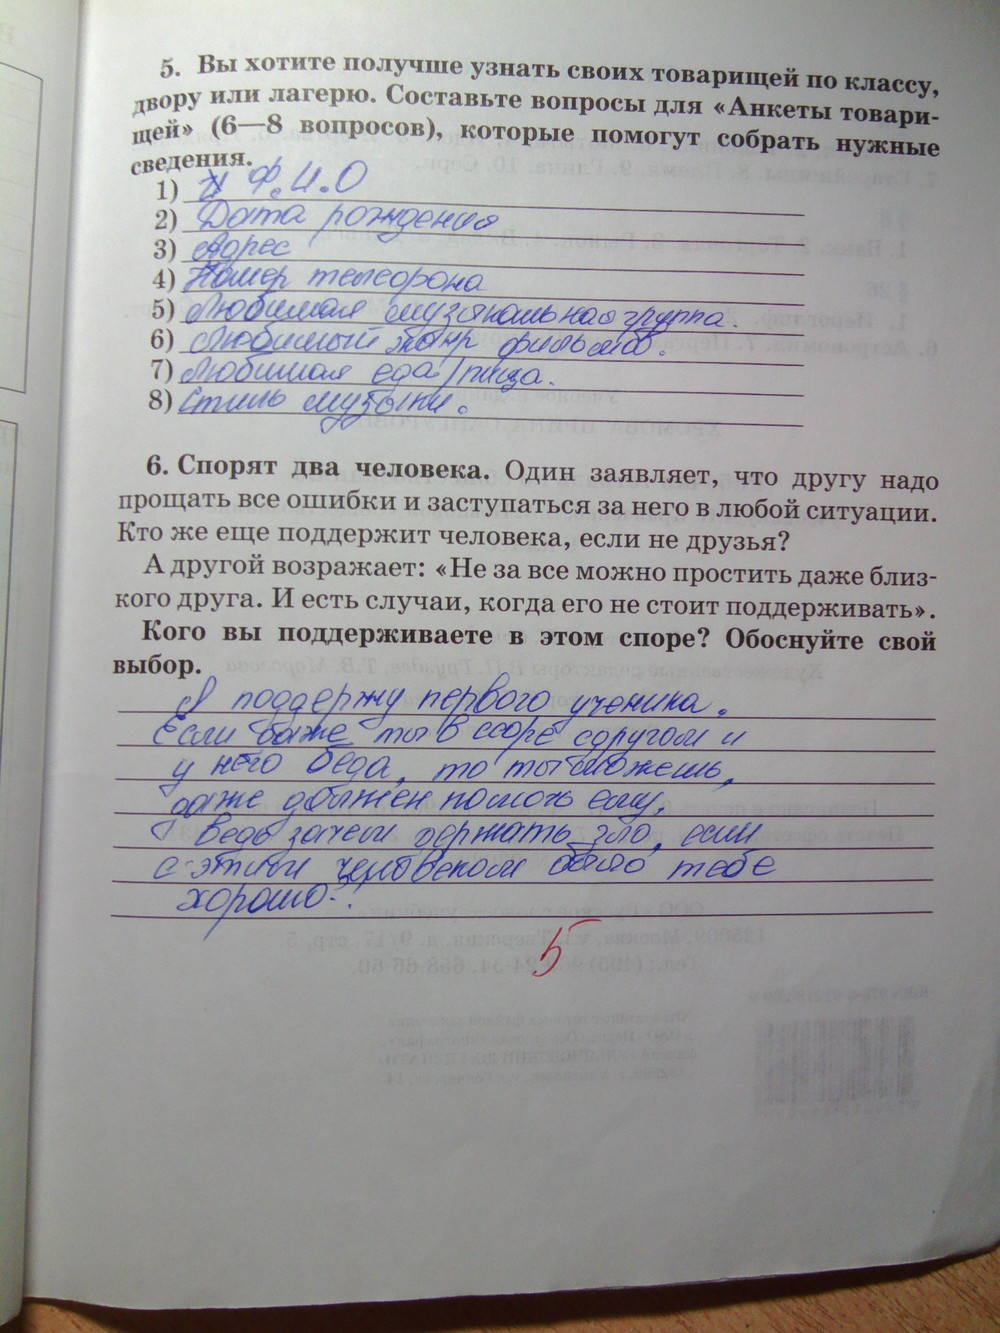 5. Вы хотите получше узнать своих товарищей по классу,
двору или лагерю. Составьте вопросы для «Анкеты товари-
щей» (6—8 вопросов), которые помогут собрать нужные
сведения.
1) Ф.И.О
2) Дата рождения
3) Адрес
4) Номер телефона
5) Любимая музыкальная группа.
6) Любимый жанр фильмов.
7) Любимая еда/пища.
8) Стиль музыки.
6. Спорят два человека. Один заявляет, что другу надо
прощать все ошибки и заступаться за него в любой ситуации.
Кто же еще поддержит человека, если не друзья?
А другой возражает: «Не за все можно простить даже близ-
кого друга. И есть случаи, когда его не стоит поддерживать».
Кого вы поддерживаете в этом споре? Обоснуйте свой
выбор.
Я поддержу первого ученика.
Если даже ты в ссоре с другом и
у него беда, то ты можешь,
даже должен помочь ему.
Ведь зачем держать зло, если
с этим человеком было тебе
хорошо?!
5